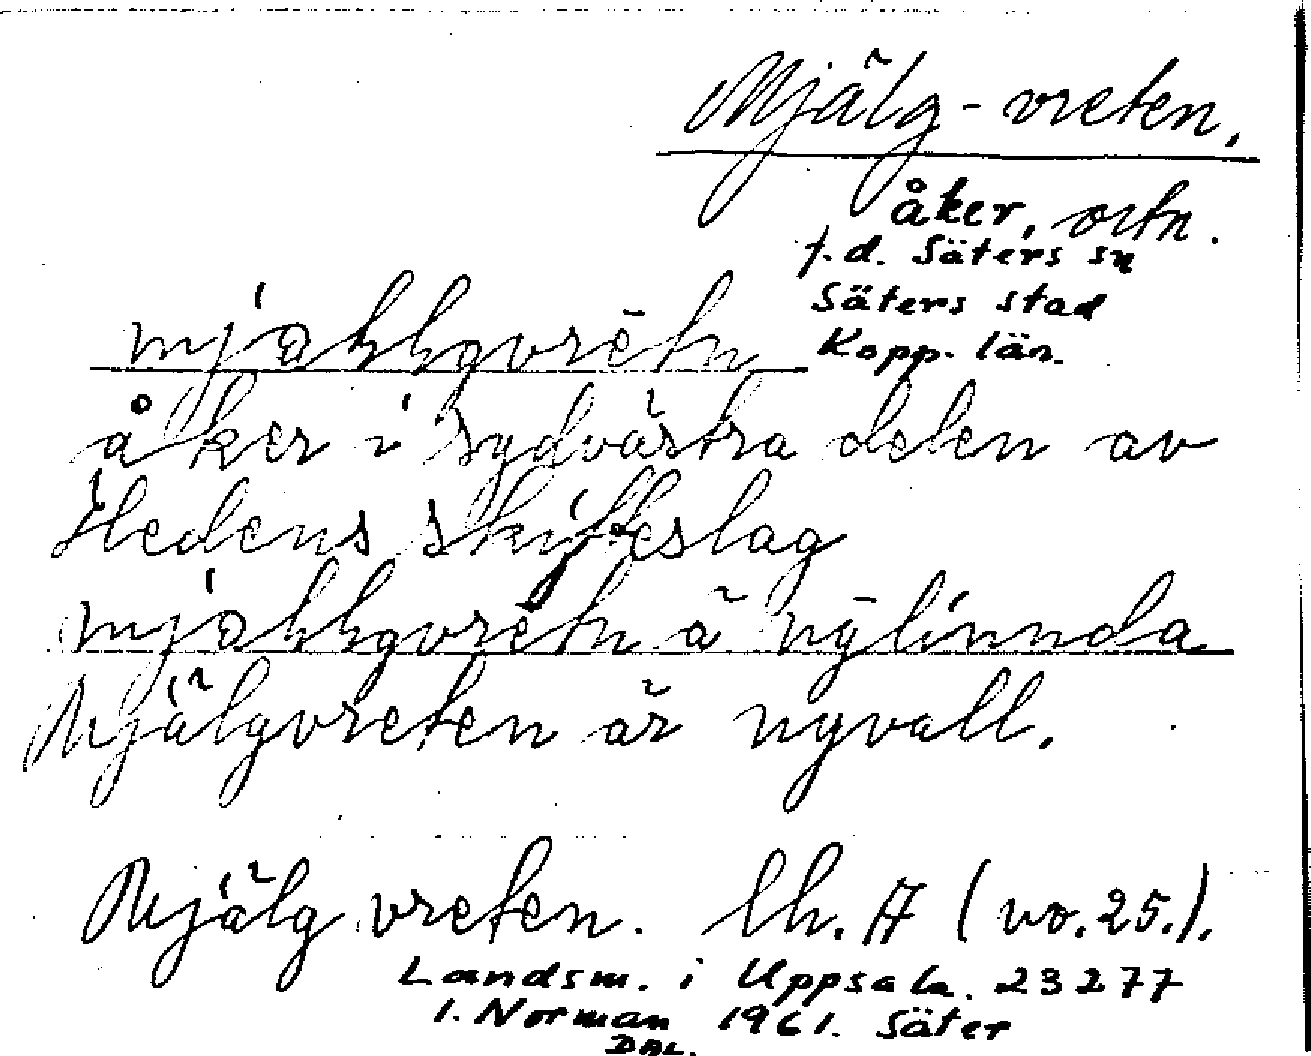 Mjälg-vreten,
åker, ortn.
f.d. Säters sn
Säters stad
Kopp. län.
åker i sydvästra delen av
Hedens skifteslag
Mjälgvreten är nyvall.
Mjälgvreten. lh. A (vo. 25.).
Landsm. i Uppsala. 23277
I. Norman 1961. Säter
DAL.